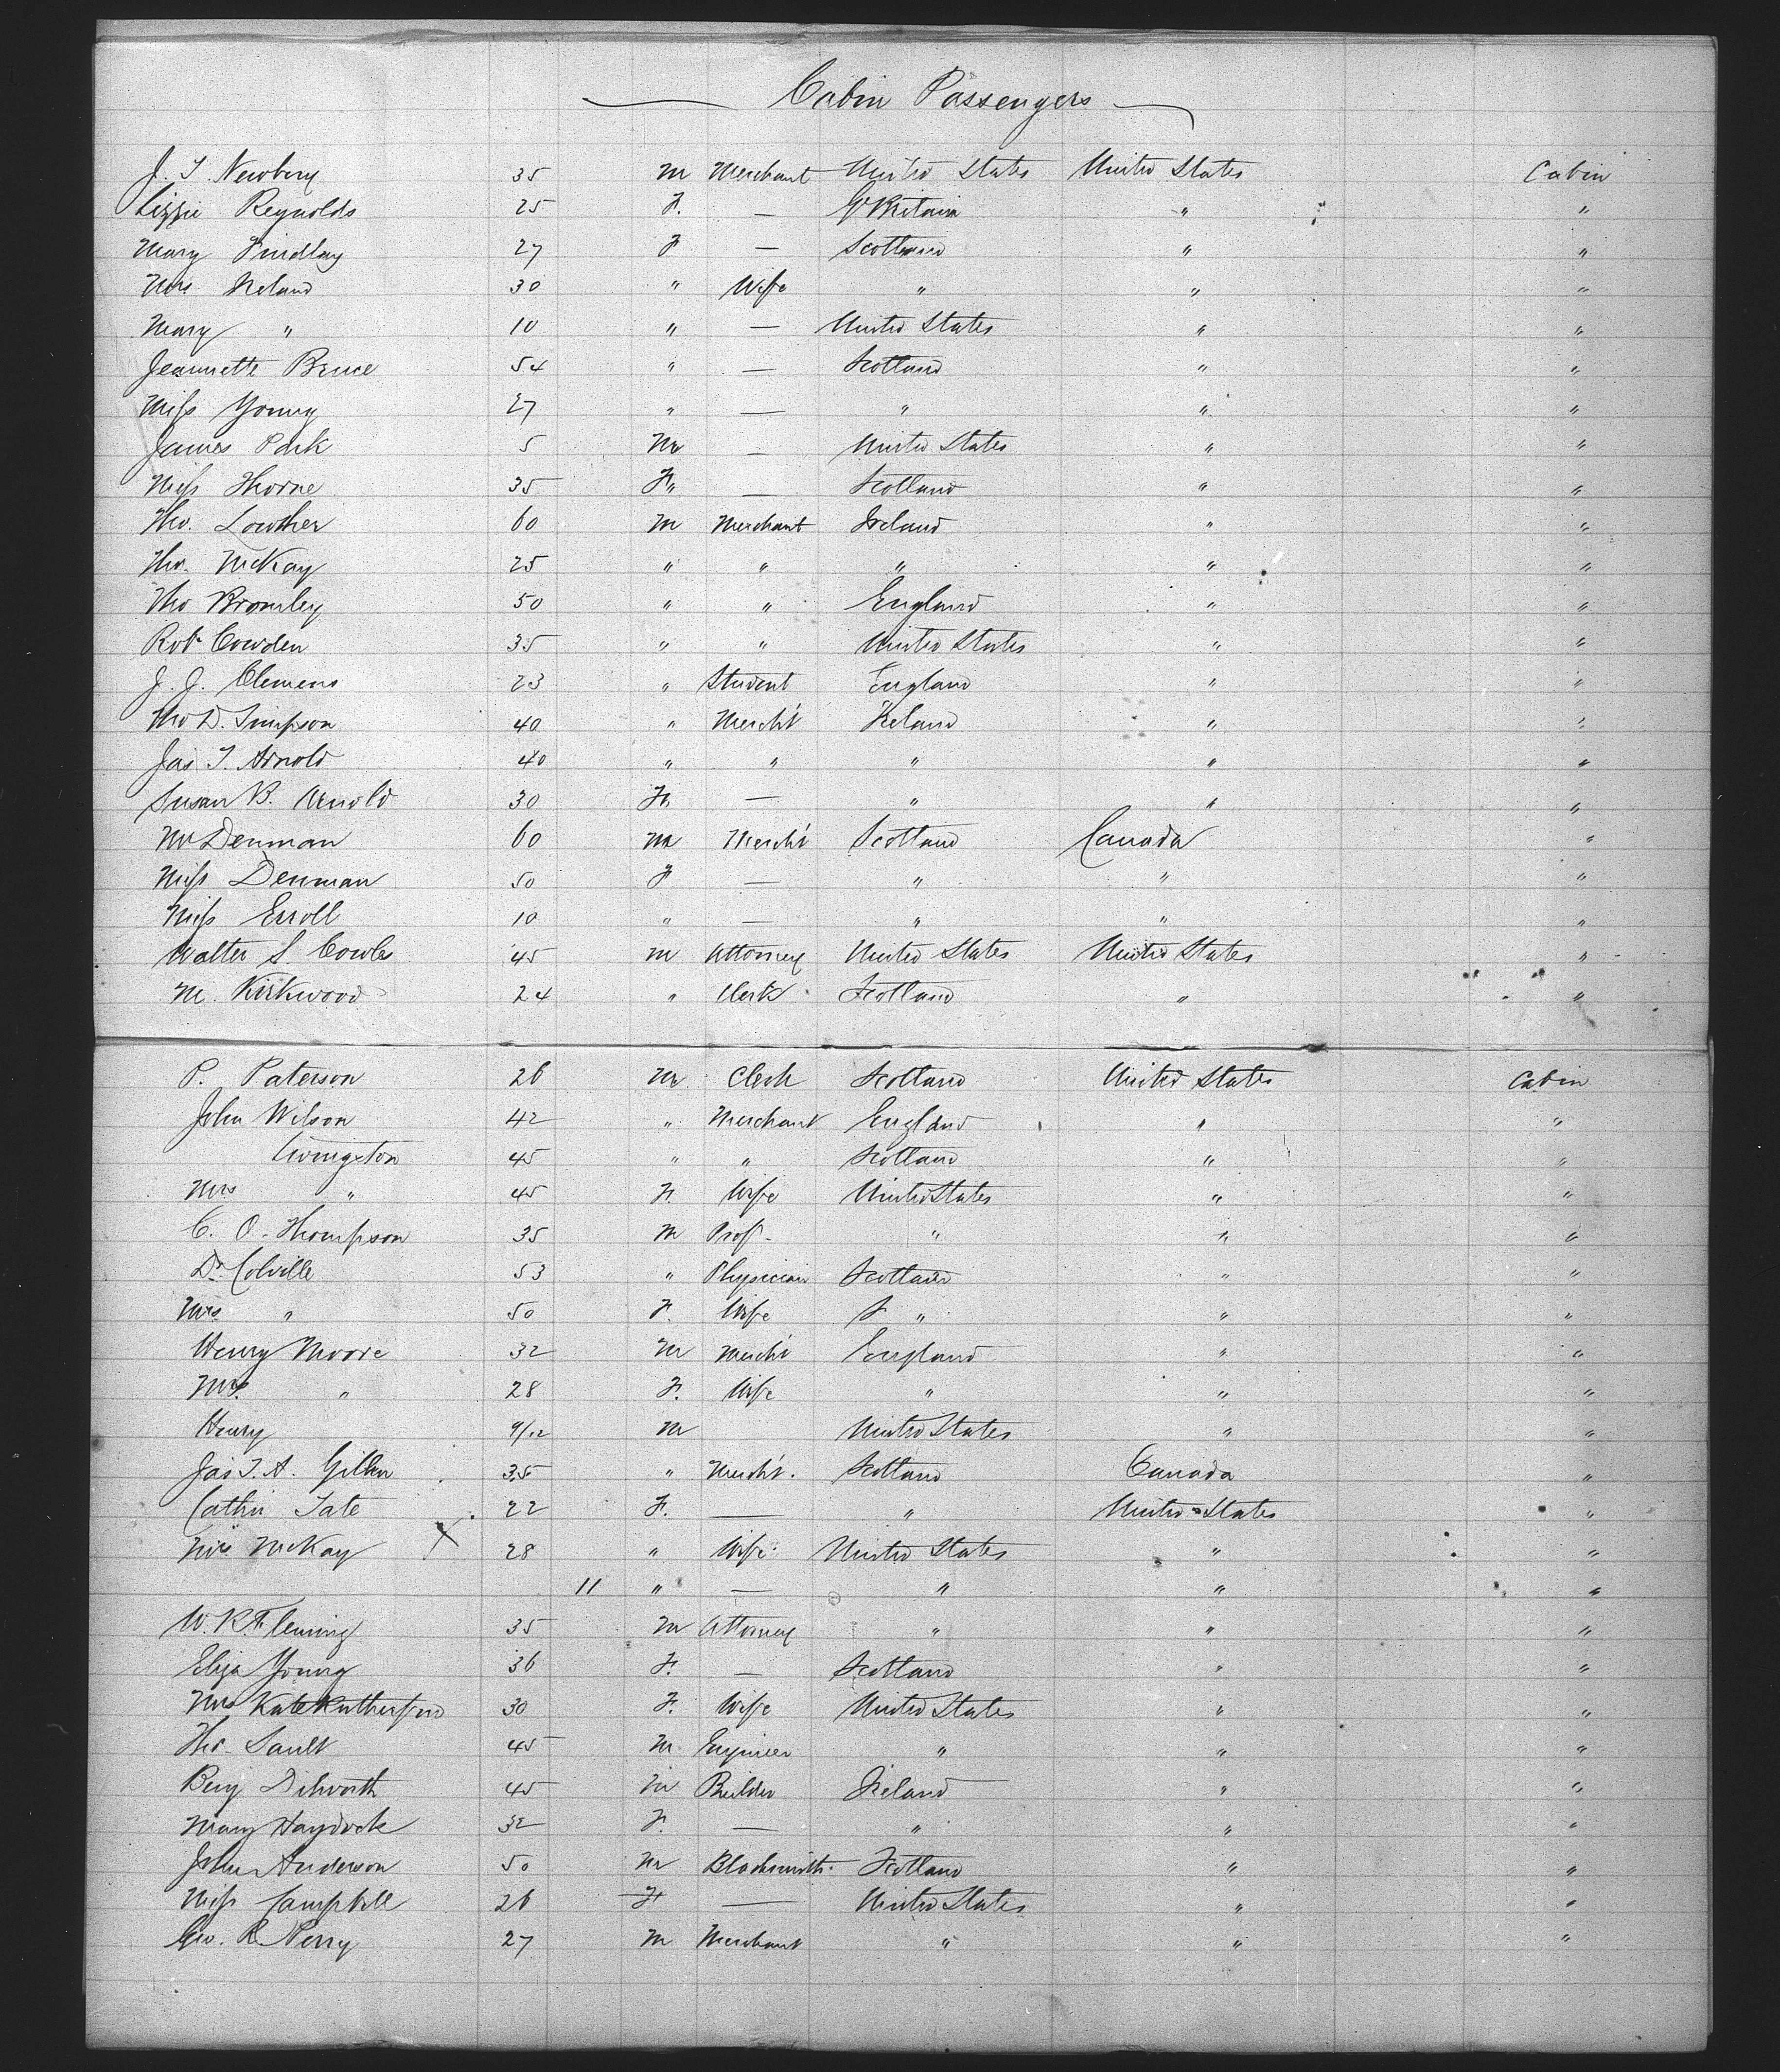 Cabin Passengers
J. T. Newbery 35 M Merchant United States United States Cabin
Lizzie Reynolds 25 F. — Gt Britain " "
Mary Findlay 27 F — Scotland " "
Mrs Ireland 30 " Wife " " "
Mary " 10 " — United States " "
Jeannette Bruce 54 " — Scotland " "
Miss Young 27 " — " " "
James Park 5 M — United States " "
Miss Thorne 35 F" — Scotland " "
Tho. Lowther 60 M Merchant Ireland " "
Tho. McKay 25 " " " " "
Tho Bromley 50 " " England " "
Robt Cowden 35 " " United States " "
J. J. Clemens 23 " Student England " "
Tho D. Simpson 40 " Mercht Ireland " "
Jas T. Arnold 40 " " " " "
Susan B. Arnold 30 F. — " " "
Mr Denman 60 M Mercht Scotland Canada "
Miss Denman 50 F — " " "
Miss Erroll 10 " — " " "
Walter S. Cowles 45 M Attorney United States United States "
M. Kirkwood 24 " Clerk Scotland " "
P. Paterson 26 M Clerk Scotland United States Cabin
John Wilson 42 " Merchant England " "
Livingston 45 " " Scotland " "
Mrs " 45 F. Wife United States " "
C. O. Thompson 35 M Prof. " " "
Dr. Colville 53 " Physician Scotland " "
Mrs. " 50 F. Wife S " " "
Henry Moore 32 M Mercht England " "
Mrs. " 28 F. Wife " " "
Henry 9/12 M United States " "
Jas T. A. 35 " Mercht. Scotland Canada "
Cathn Tate 22 F. — " United States "
Mrs McKay X 28 " Wife United States " "
11 " — " " "
W. R. Fleming 35 M Attorney " " "
Eliza Young 36 F. — Scotland " "
Mrs Kate Rutherford 30 F. Wife United States " "
Tho. Sault 45 M. Engineer " " "
Benj Dilworth 45 M Builder Ireland " "
Mary Haydock 32 F. — " " "
John Anderson 50 M Blacksmith. Scotland " "
Miss Campbell 26 F — United States " "
Geo. R. Perry 27 M Merchant " " "